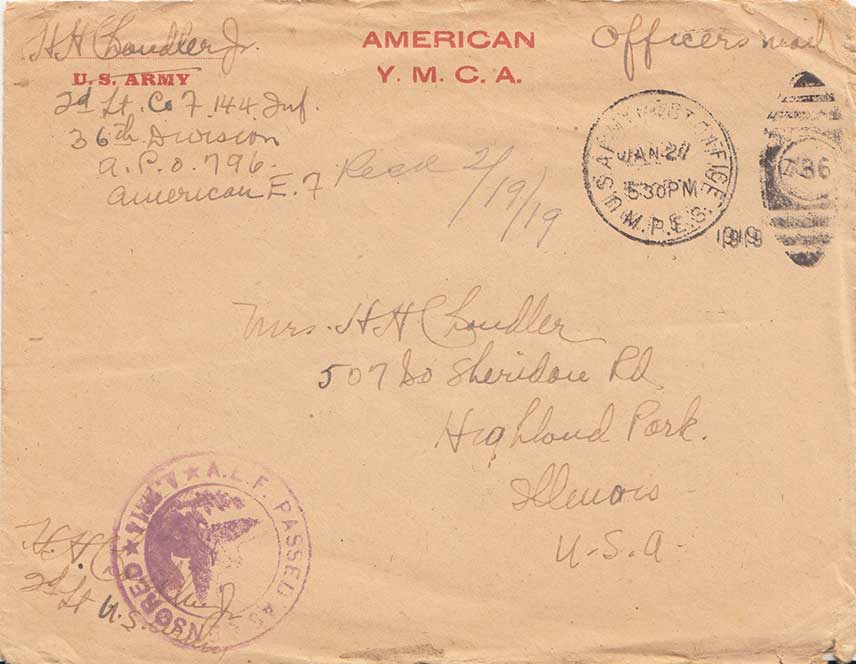 H H Chandler Jr.
AMERICAN
Officers mail
U. S. ARMY
Y. M. C. A.
2d Lt. Co F. 144 Inf.
36th Division
A.P.O. 796.
American E. F
Recd 2/19/19
U.S. ARMY POST OFFICE
JAN 27
530PM
M.P.E.S.
1919
786
Mrs. H H Chandler
507 So Sheridan Rd
Highland Park.
Illinois
U.S.A.
A.E.F. PASSED AS CENSORED
H. H. Chandler Jr
2d Lt U.S. Army